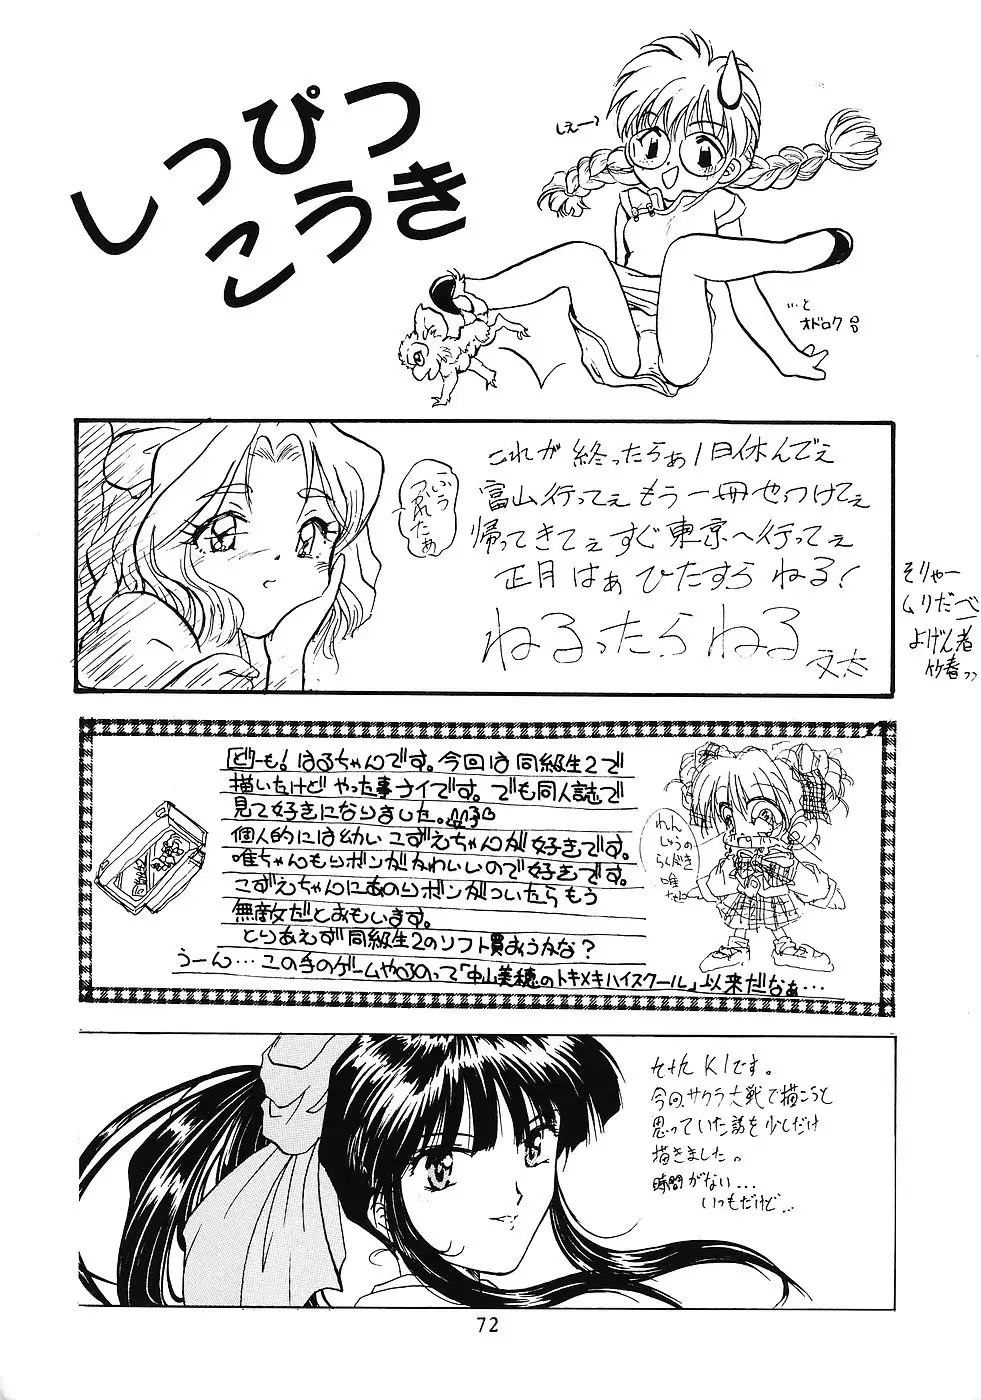 しっぴつ
こうき
しぇー？
…と
オドロク
これが 終ったらぁ1日休んでぇ
富山行ってぇもう一冊やっつけてぇ
帰ってきてぇすぐ東京へ行ってぇ
正月はぁひたすら ねる！
ねるったらねる
文太
こいう
つかれたぁ
そりゃー
ムリだべ
よげん者
竹春
どーも！はるちゃんです。今回は同級生2で
描いたけど やった事ナイです。でも同人誌で
見て好きになりました。
個人的には幼い こずえちゃんが好きです。
唯ちゃんもリボンがかわいいので好きです。
こずえちゃんにあのリボンがついたらもう
無敵だとおもいます。
とりあえず同級生2のソフト買おうかな？
うーん…この手のゲームやるのって「中山美穂のトキメキハイスクール」以来だなぁ…
れん
しゅうの
らくがき
唯
K1です。
今回、サクラ大戦で描こうと
思っていた話を少しだけ
描きました。
時間がない…
いつもだけど…
72